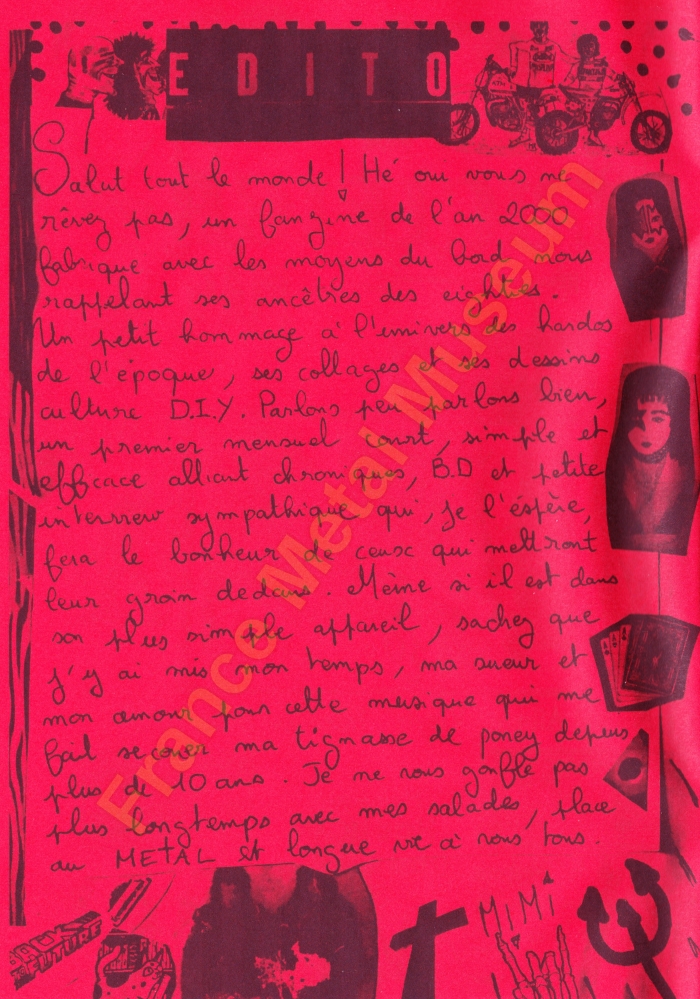 EDITO
Salut tout le monde ! Hé oui vous ne
rêvez pas, un fanzine de l'an 2000
fabriqué avec les moyens du bord nous
rappelant ses ancêtres des eighties.
Un petit hommage à l'univers des hardos
de l'époque, ses collages et ses dessins
culture D.I.Y. Parlons peu parlons bien,
un premier mensuel court, simple et
efficace alliant chroniques, B.D et petite
interview sympathique qui, je l'éspère,
fera le bonheur de ceux qui mettront
leur groin dedans. Même si il est dans
son plus simple appareil, sachez que
j'y ai mis mon temps, ma sueur et
mon amour pour cette musique qui me
fait secouer ma tignasse de poney depuis
plus de 10 ans. Je ne vous gonfle pas
plus longtemps avec mes salades, place
au METAL et longue vie à vous tous.
MiMi
BACK
TO THE
FUTURE
France Metal Museum